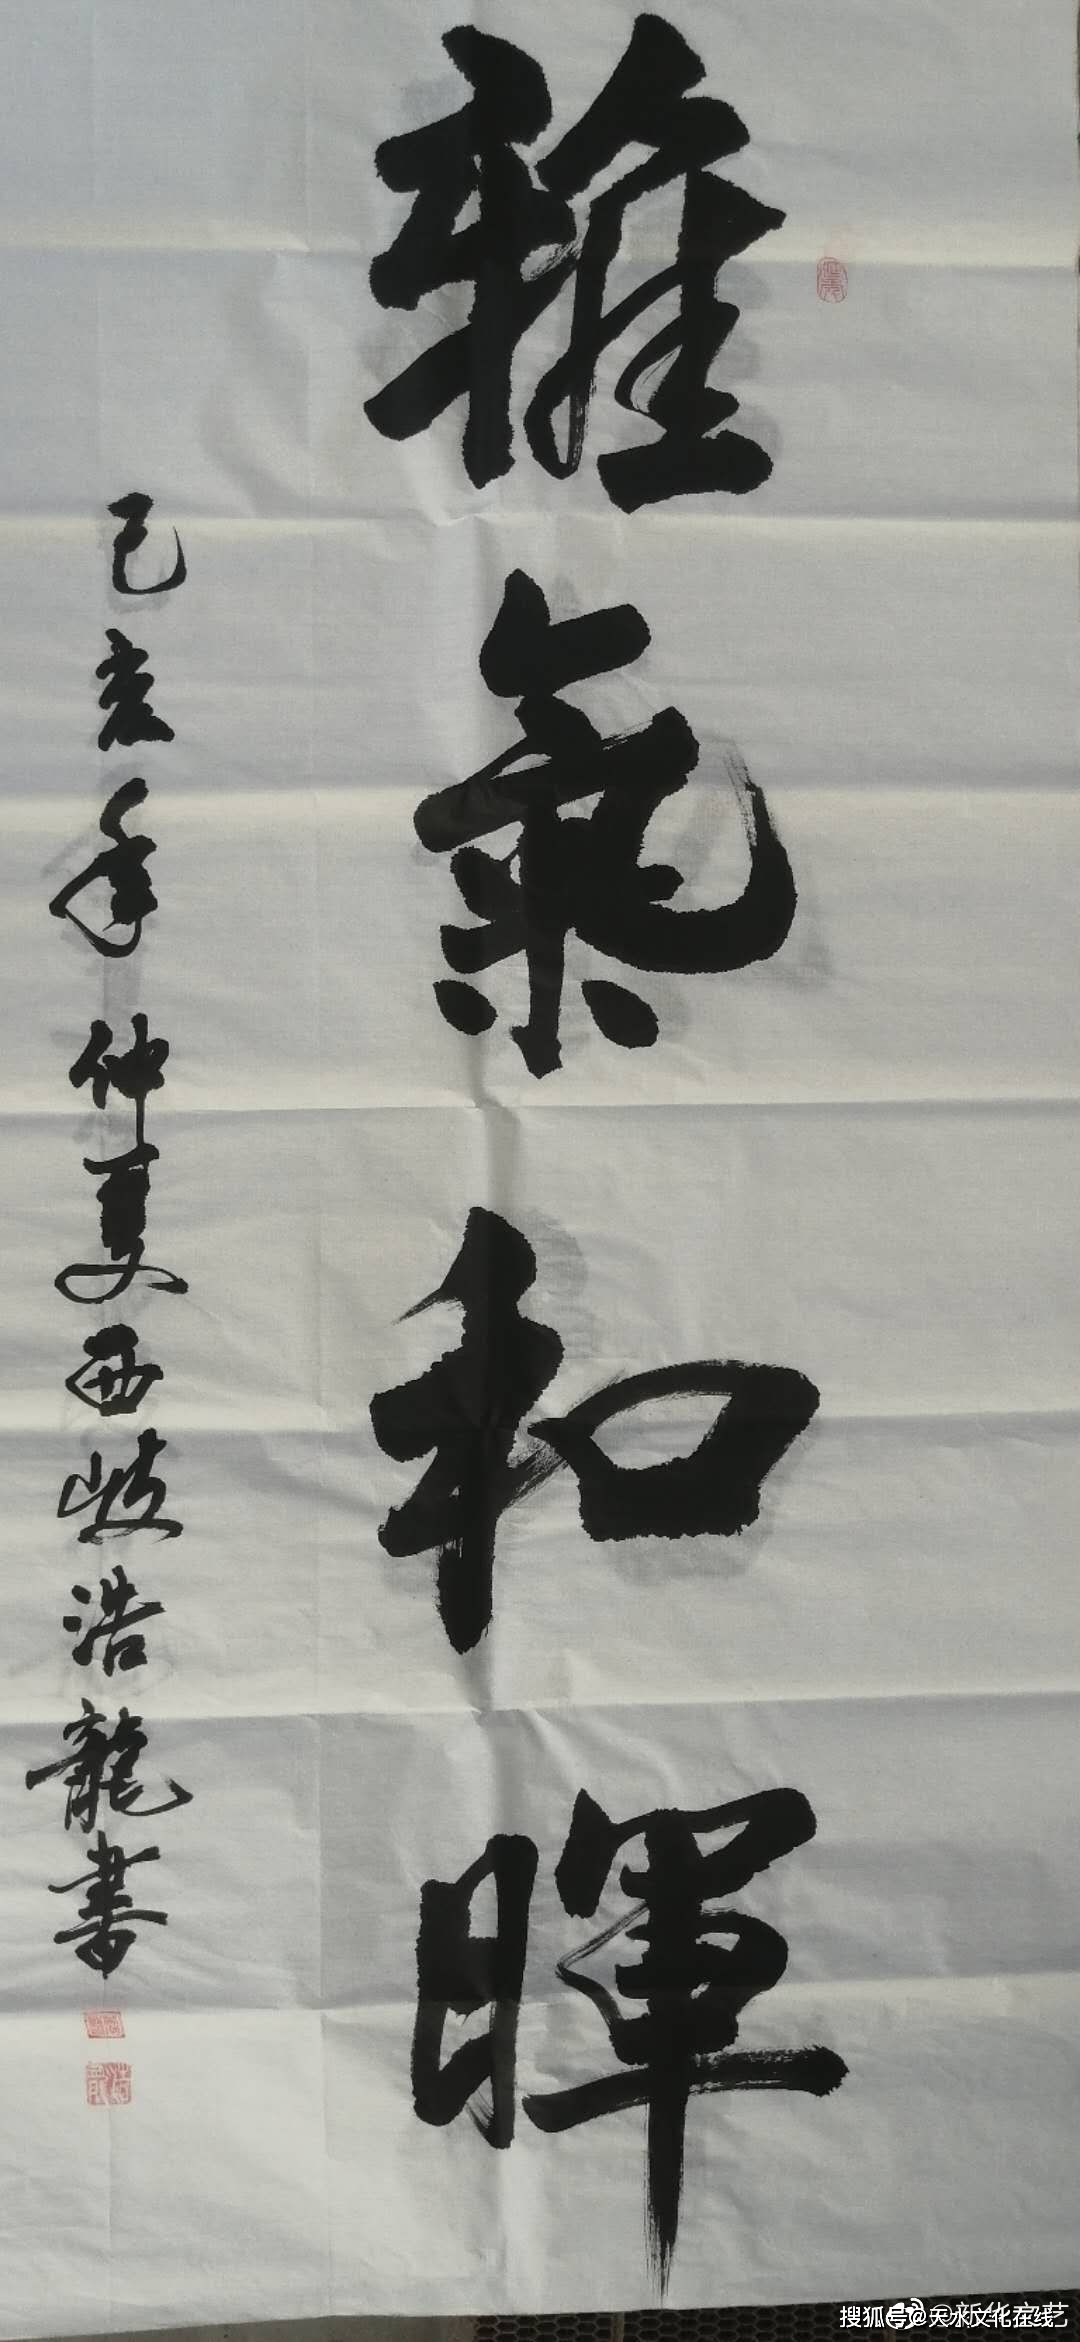 雅氣和暉
己亥年仲夏西岐浩龍書
搜狐号@天水文化在线
@新华文艺